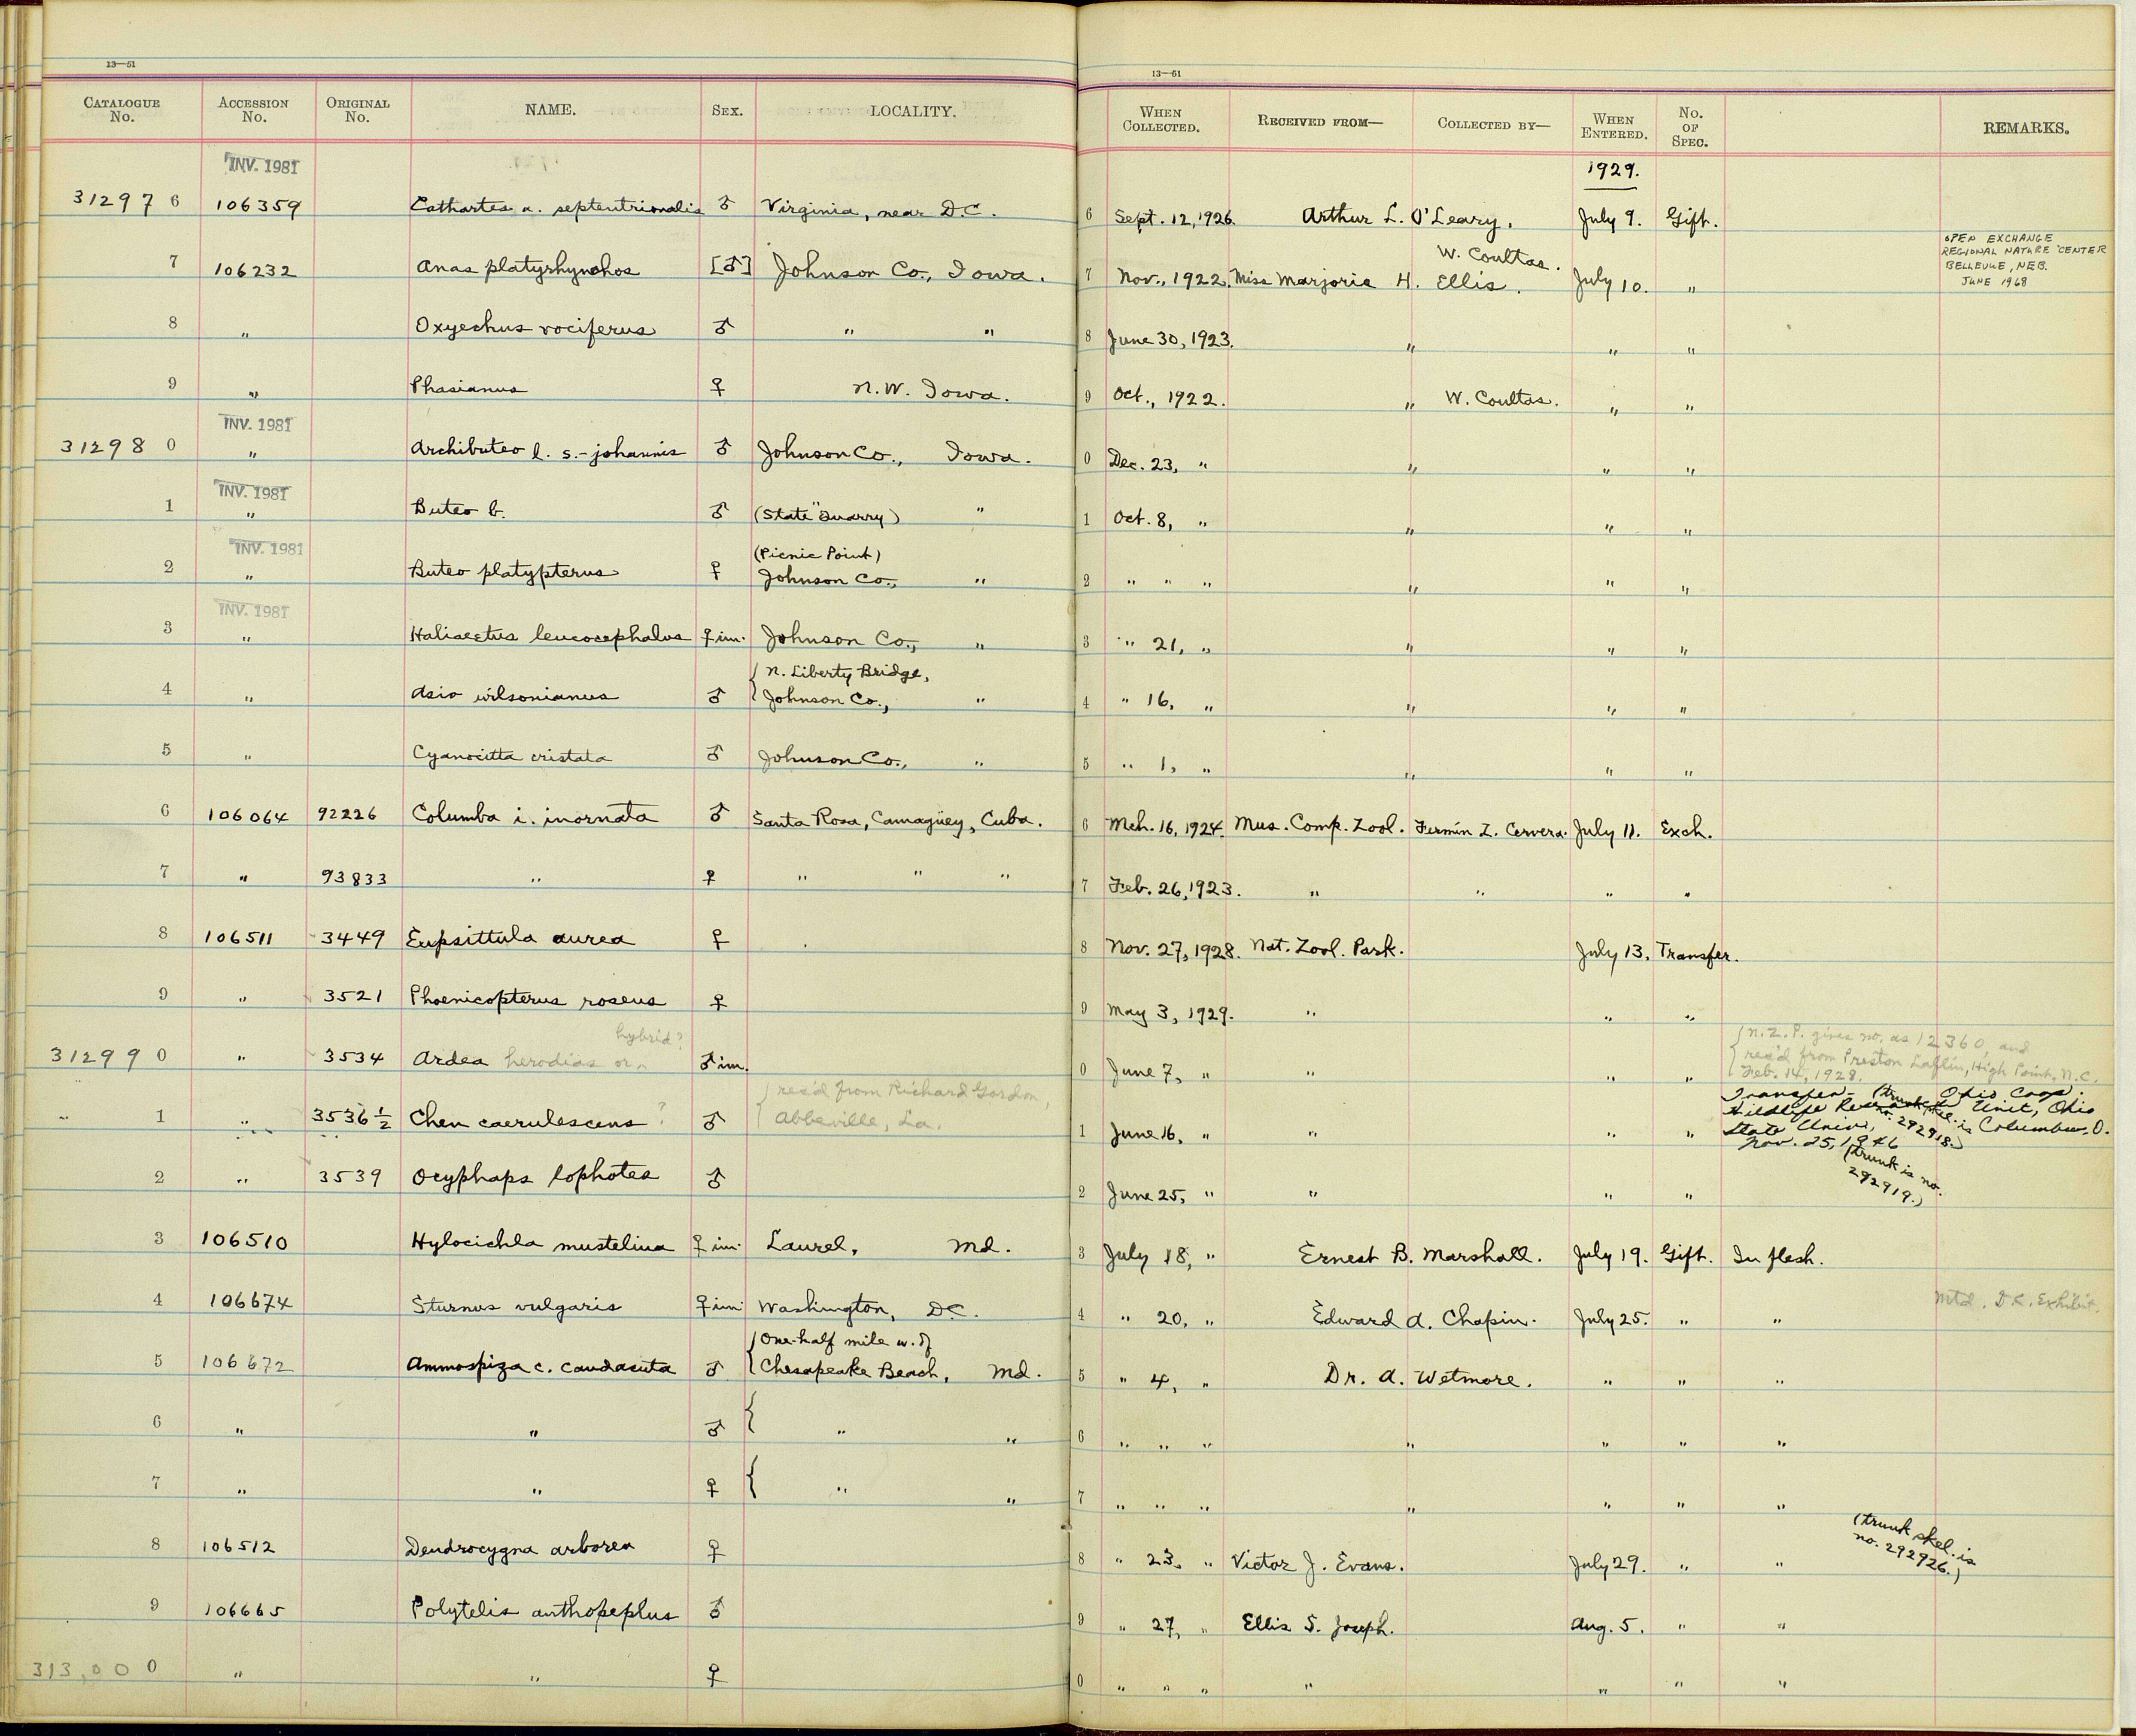 13—51
Catalogue No. Accession No. Original No. NAME. Sex. LOCALITY.
INV. 1981
31297 6 106359 Cathartes a. septentrionalis ♂ Virginia, near D.C.
7 106232 Anas platyrhynchos [♂] Johnson Co., Iowa.
8 " Oxyechus vociferus ♂ " "
9 " Phasianus ♀ N.W. Iowa.
INV. 1981
31298 0 " Archibuteo l. s.-johannis ♂ Johnson Co., Iowa.
INV. 1981
1 " Buteo b. ♂ (State Quarry) " "
INV. 1981
2 " Buteo platypterus ♀ (Picnic Point) Johnson Co., "
INV. 1981
3 " Haliaeetus leucocephalus ♀ im. Johnson Co., "
4 " Asio wilsonianus ♂ { N. Liberty Bridge, Johnson Co., "
5 " Cyanocitta cristata ♂ Johnson Co., "
6 106064 92226 Columba i. inornata ♂ Santa Rosa, Camagüey, Cuba.
7 " 93833 " ♀ " " "
8 106511 3449 Eupsittula aurea ♀
9 " 3521 Phoenicopterus roseus ♀
hybrid?
31299 0 " 3534 Ardea herodias or ♂ im.
1 " 3536 1/2 Chen caerulescens ? ♂ { rec'd from Richard Gordon, Abbeville, La.
2 " 3539 Ocyphaps lophotes ♂
3 106510 Hylocichla mustelina ♀ im. Laurel, Md.
4 106674 Sturnus vulgaris ♀ im. Washington, D.C.
5 106672 Ammospiza c. caudacuta ♂ { One-half mile w. of Chesapeake Beach, Md.
6 " " ♂ { " "
7 " " ♀ { " "
8 106512 Dendrocygna arborea ♀
9 106665 Polytelis anthopeplus ♂
313,00 0 " " ♀
13—51
When Collected. Received from— Collected by— When Entered. No. of Spec. REMARKS.
1929.
6 Sept. 12, 1926. Arthur L. O'Leary. July 9. Gift.
7 Nov., 1922. Miss Marjorie H. Ellis. W. Coultas. July 10. " OPEN EXCHANGE
REGIONAL NATURE CENTER
BELLEVUE, NEB.
JUNE 1968
8 June 30, 1923. " " "
9 Oct., 1922. " W. Coultas. " "
0 Dec. 23, " " " "
1 Oct. 8, " " " "
2 " " " " " "
3 " 21, " " " "
4 " 16, " " " "
5 " 1, " " " "
6 Mch. 16, 1924. Mus. Comp. Zool. Fermín Z. Cervera. July 11. Exch.
7 Feb. 26, 1923. " " " "
8 Nov. 27, 1928. Nat. Zool. Park. July 13. Transfer.
9 May 3, 1929. " " "
0 June 7, " " " " { N.Z.P. gives no. as 12360, and
rec'd from Preston Laflin, High Point, N.C.
Feb. 14, 1928.
Transfer - Ohio Coop.
Wildlife Research Unit, Ohio
State Univ., Columbus, O.
Nov. 25, 1946
1 June 16, " " " " (trunk skel. is no. 292918.)
2 June 25, " " " " (trunk is no. 292919.)
3 July 18, " Ernest B. Marshall. July 19. Gift. In flesh.
4 " 20, " Edward A. Chapin. July 25. " " Mtd. D.C. Exhibit.
5 " 4, " Dr. A. Wetmore. " " "
6 " " " " " " "
7 " " " " " " "
8 " 23, " Victor J. Evans. July 29. " " (trunk skel. is no. 292926.)
9 " 27, " Ellis S. Joseph. Aug. 5. " "
0 " " " " " " "